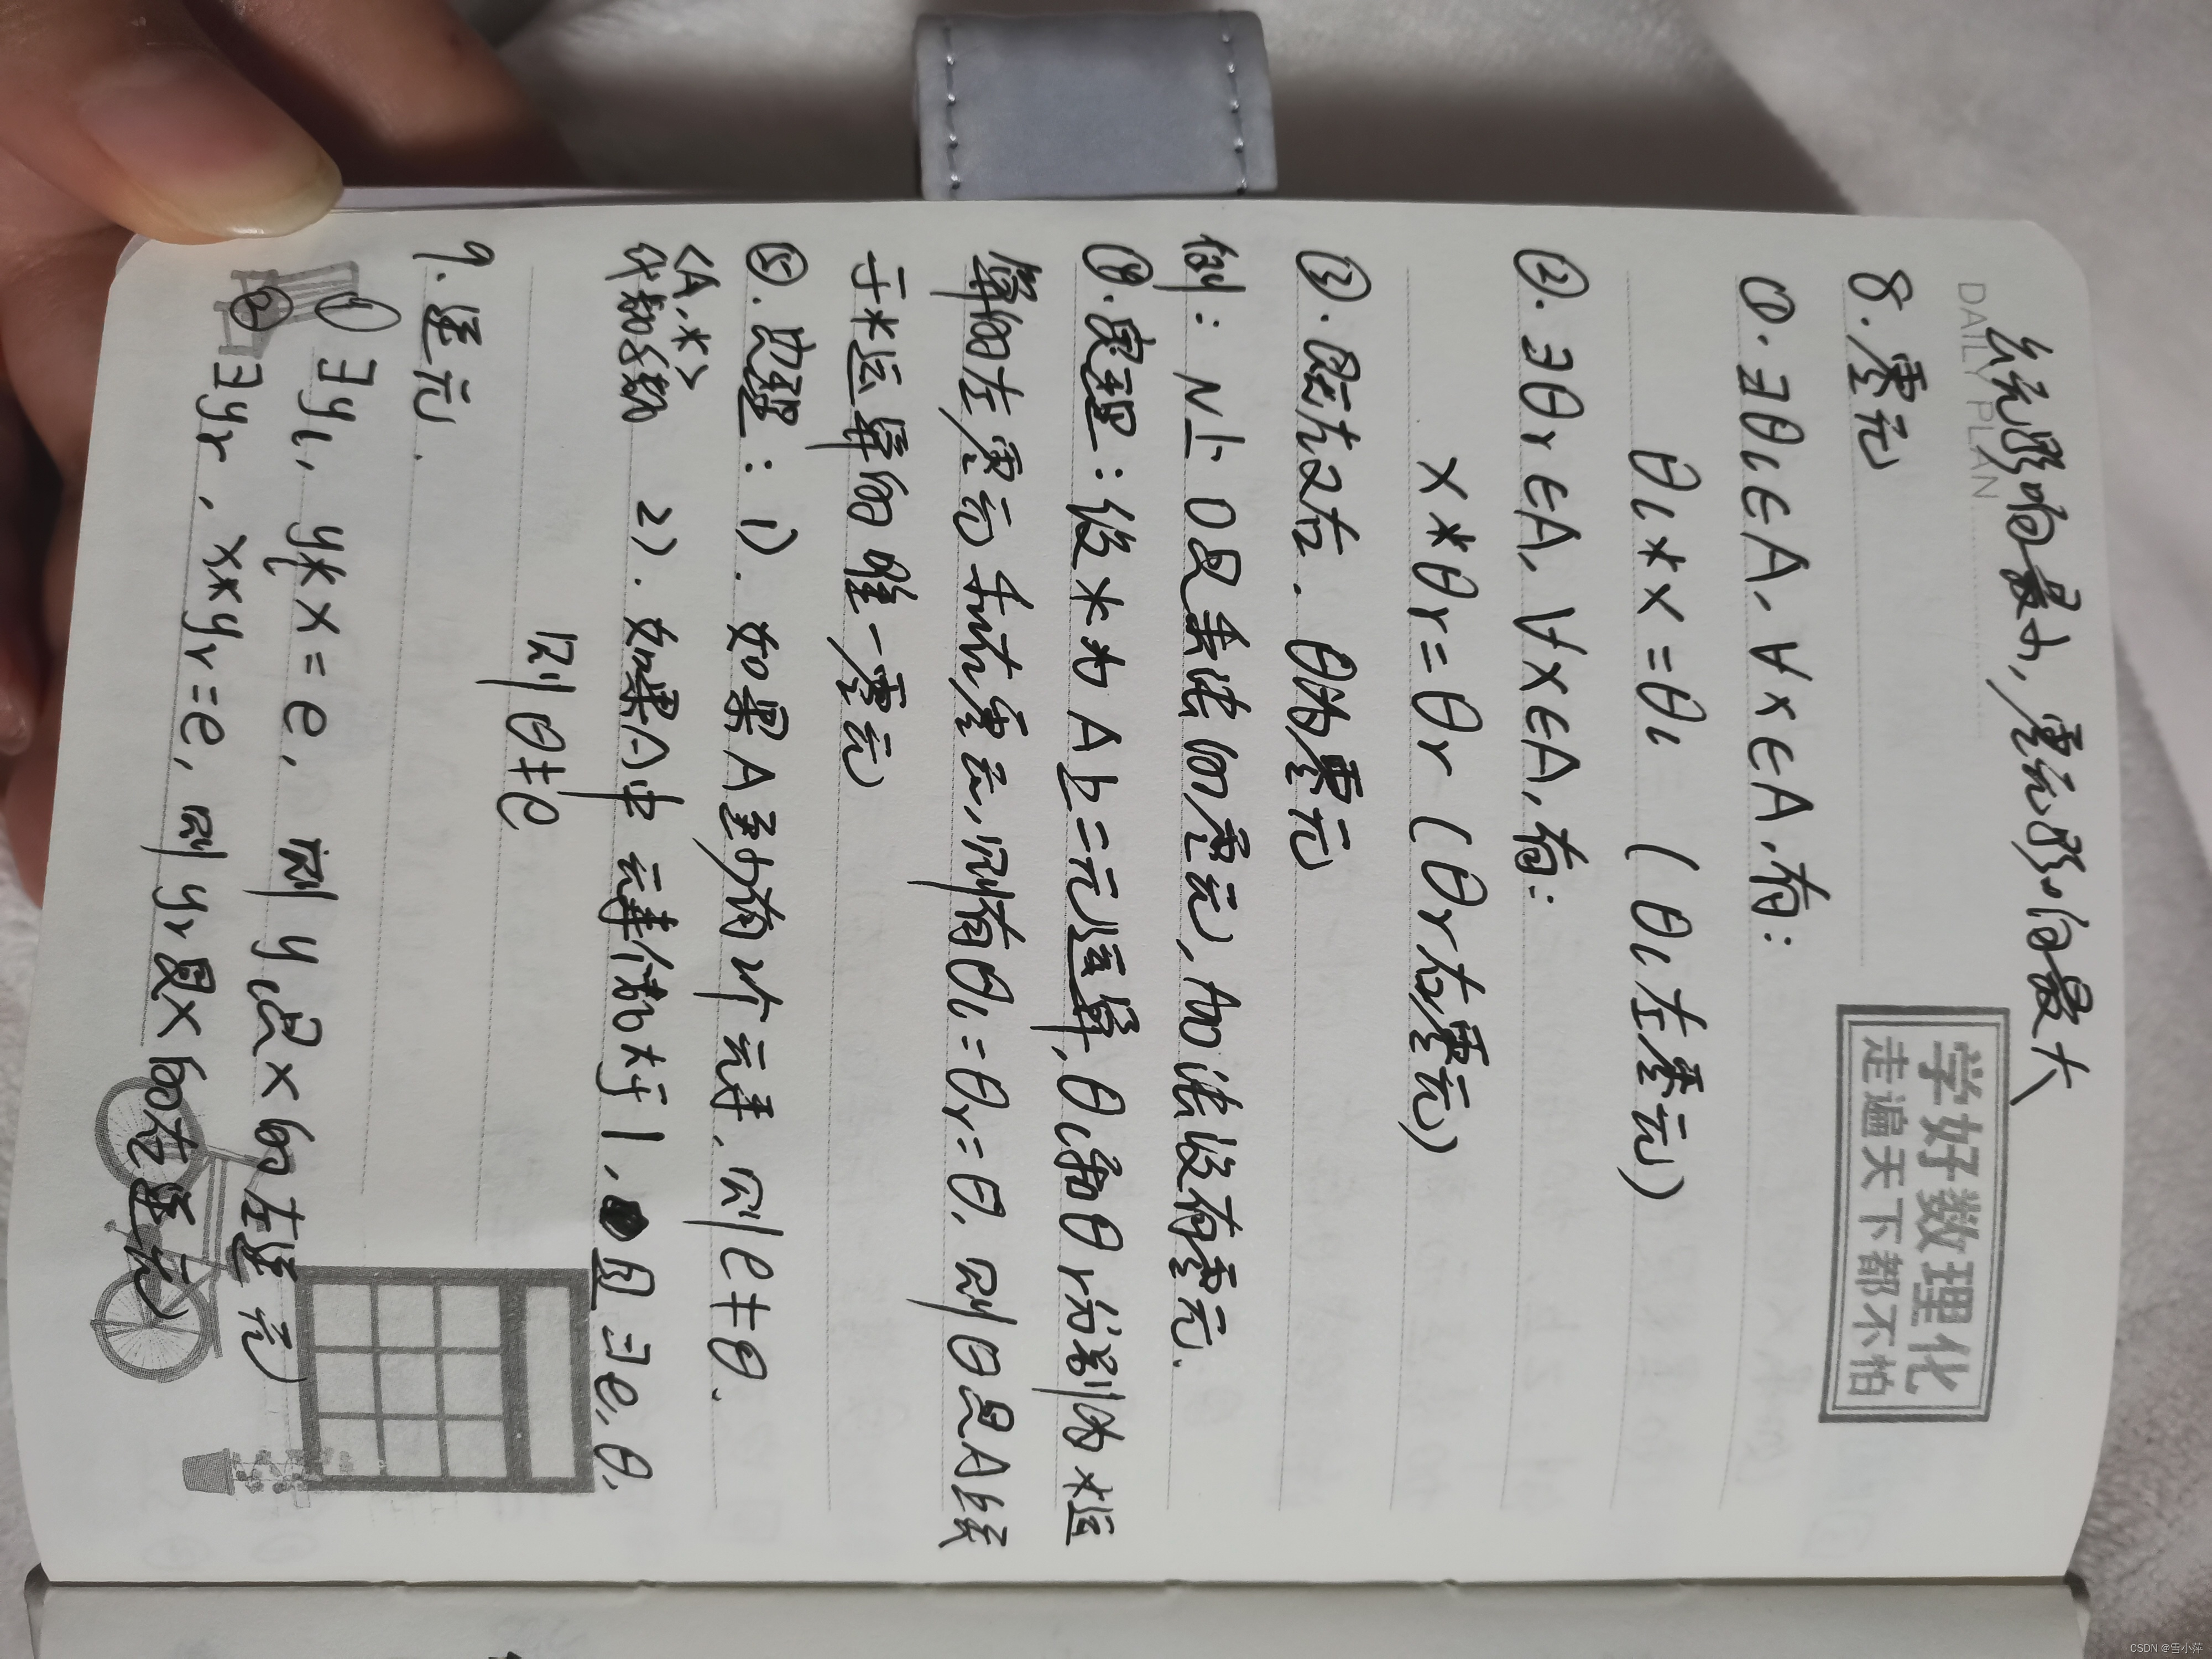 幺元影响最小,零元影响最大
DAILY PLAN
学好数理化
走遍天下都不怕
8.零元
①.∃θl∈A,∀x∈A,有:
θl*x=θl (θl左零元)
②.∃θr∈A,∀x∈A,有:
x*θr=θr (θr右零元)
③.既左又右.θ为零元
例:N上0是乘法的零元,加法没有零元.
④.定理:设*为A上二元运算,θl和θr分别为*运
算的左零元和右零元,则有θl=θr=θ,则θ是A上关
于*运算的唯一零元
⑤.定理:1).如果A至少有2个元素,则e≠θ.
<A,*>
代数系数 2).如果A中元素个数大于1,且∃e,θ,
则θ≠e
9.逆元.
① ∃yl,yl*x=e,则yl是x的左逆元
② ∃yr,x*yr=e,则yr是x的右逆元
CSDN @雪小萍